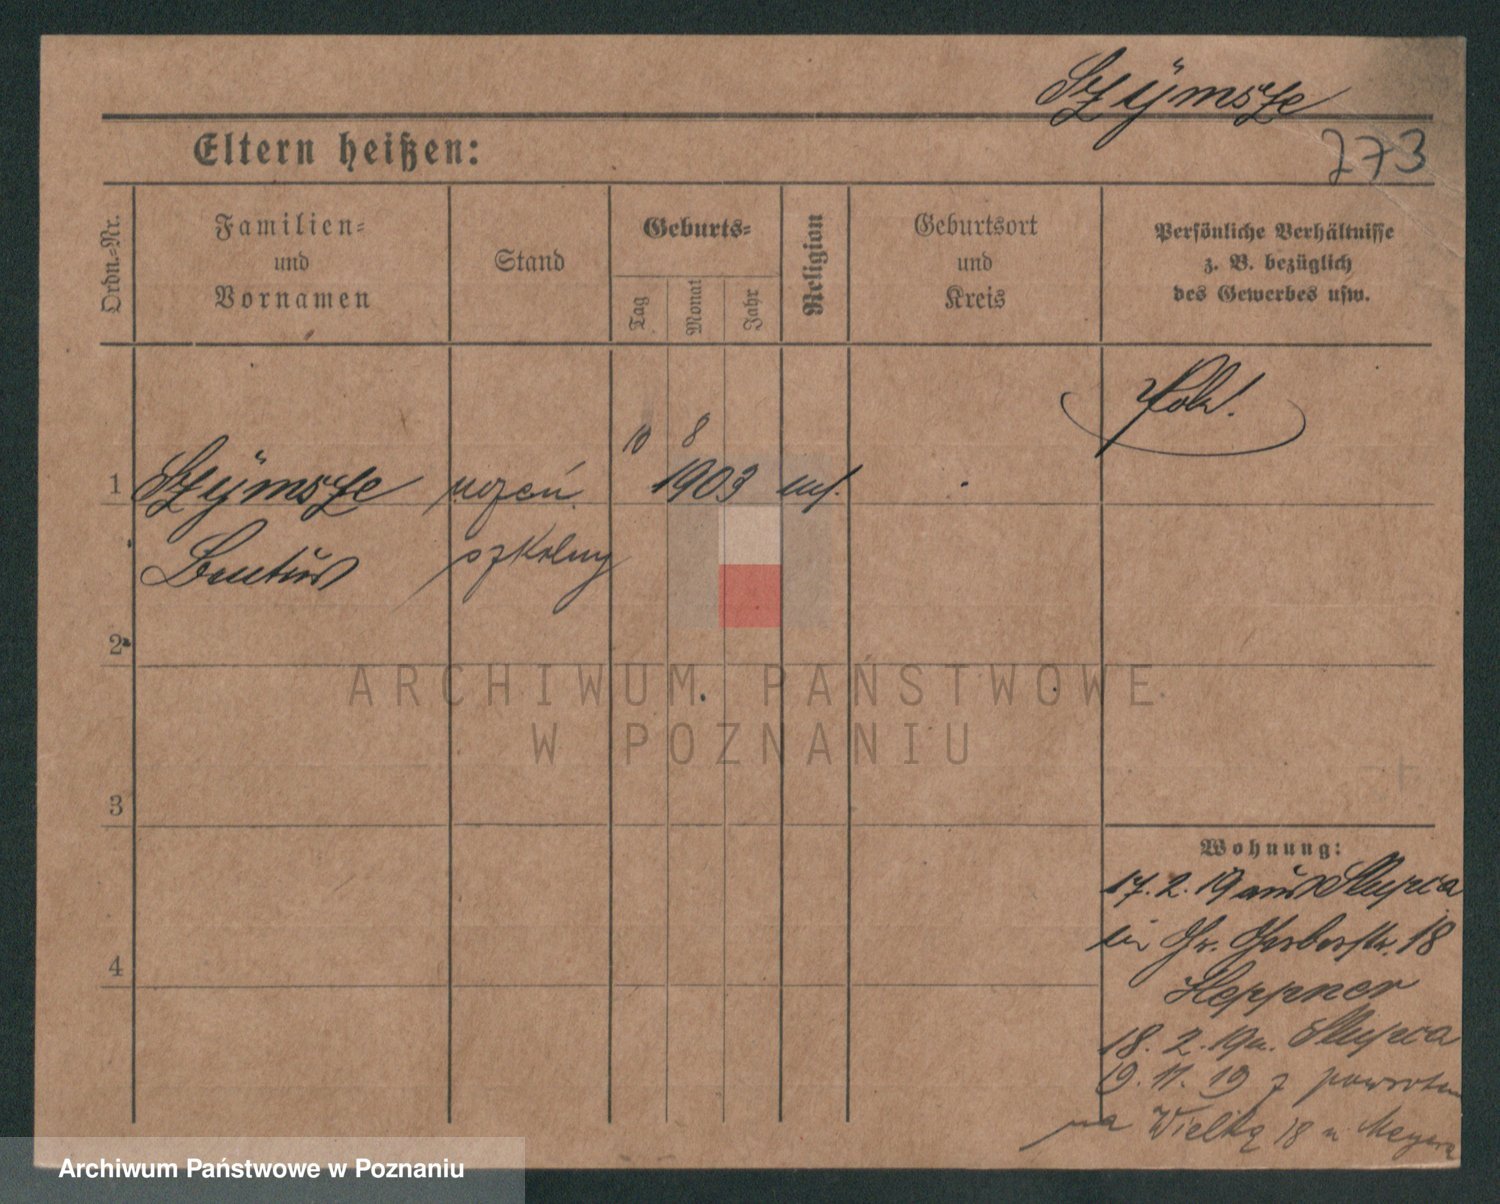 Szÿmsze
Eltern heißen:
273
Ordn.-Nr.
Familien- und Vornamen
Stand
Geburts-
Tag
Monat
Jahr
Religion
Geburtsort und Kreis
Persönliche Verhältnisse
z. B. bezüglich
des Gewerbes usw.
10 8
1 Szÿmsze uczeń 1903
szkolny
2
3
4
Wohnung:
17. 2. 19 aus Slupca
Gr. Gerberstr. 18
Heppner
18. 2. 19 n. Slupca
19. 11. 19 z powrotem
na Wielką 18 u Meyera
ARCHIWUM PAŃSTWOWE
W POZNANIU
Archiwum Państwowe w Poznaniu